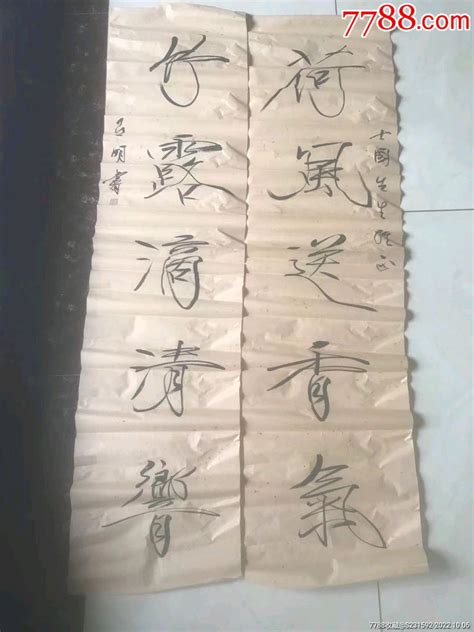 7788.com
荷風送香氣
士國先生雅正
竹露滴清響
呂明書
7788收藏@S231592·2022.10.06